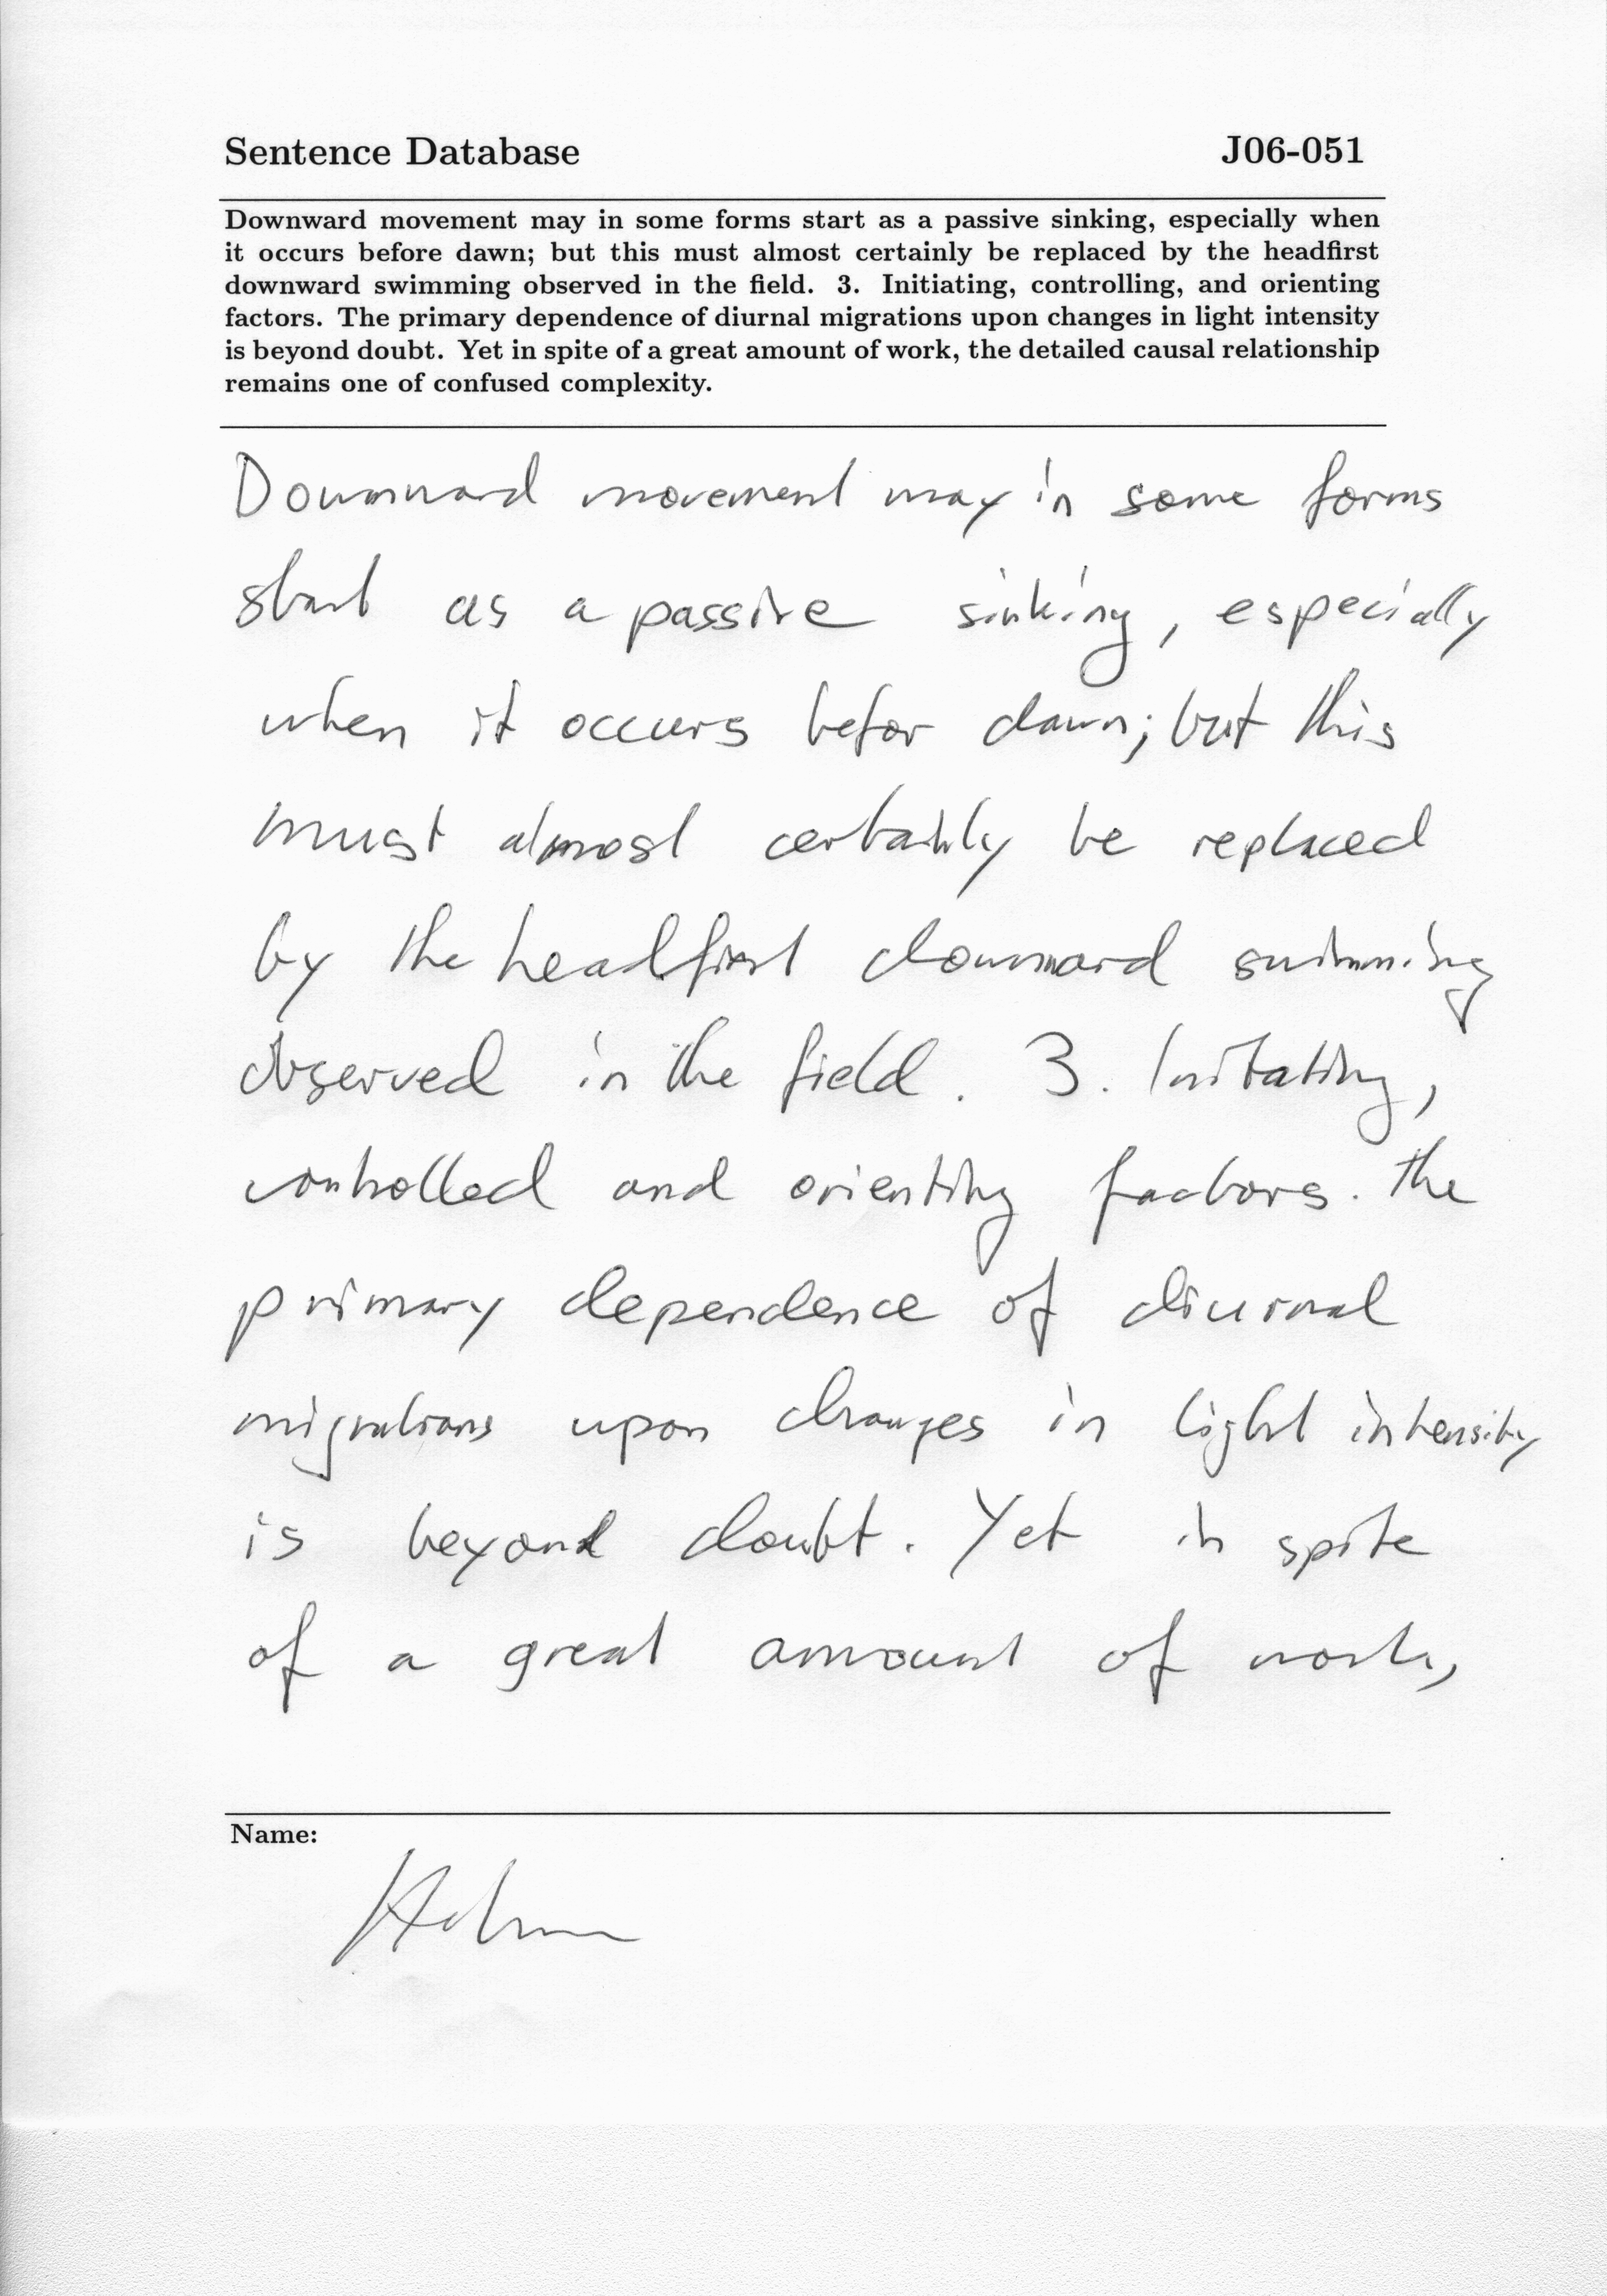 Sentence Database J06-051
Downward movement may in some forms start as a passive sinking, especially when
it occurs before dawn; but this must almost certainly be replaced by the headfirst
downward swimming observed in the field. 3. Initiating, controlling, and orienting
factors. The primary dependence of diurnal migrations upon changes in light intensity
is beyond doubt. Yet in spite of a great amount of work, the detailed causal relationship
remains one of confused complexity.
Downward movement may in some forms
start as a passive sinking, especially
when it occurs befor dawn; but this
must almost certainly be replaced
by the headfirst downward swimming
observed in the field. 3. Initating,
controlled and orienting factors. the
primary dependence of diurnal
migrations upon changes in light intensity
is beyond doubt. Yet in spite
of a great amount of work,
Name: